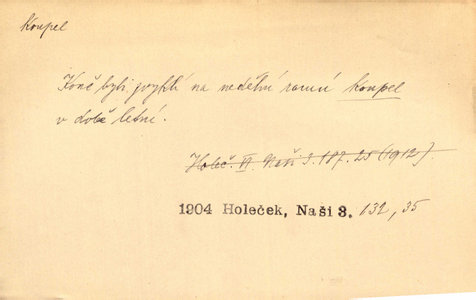 Koupel
Koně byli zvyklí na nedělní ranní koupel
v době letní.
Holeč. VI. Naši 3. 187. 25 (1912).
1904 Holeček, Naši 3. 132, 35